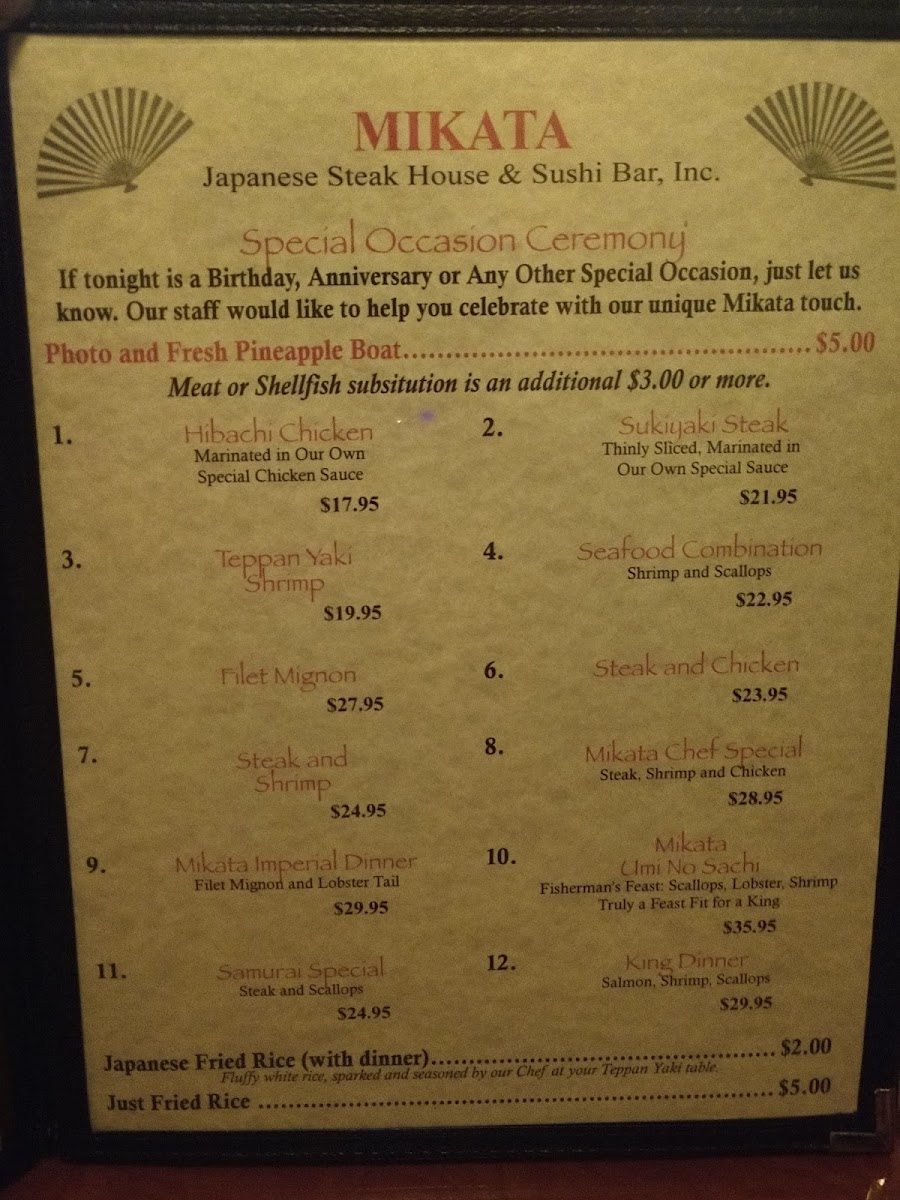 MIKATA
Japanese Steak House & Sushi Bar, Inc.
Special Occasion Ceremony
If tonight is a Birthday, Anniversary or Any Other Special Occasion, just let us
know. Our staff would like to help you celebrate with our unique Mikata touch.
Photo and Fresh Pineapple Boat............................................... $5.00
Meat or Shellfish subsitution is an additional $3.00 or more.
1. Hibachi Chicken
Marinated in Our Own
Special Chicken Sauce
$17.95
2. Sukiyaki Steak
Thinly Sliced, Marinated in
Our Own Special Sauce
$21.95
3. Teppan Yaki
Shrimp
$19.95
4. Seafood Combination
Shrimp and Scallops
$22.95
5. Filet Mignon
$27.95
6. Steak and Chicken
$23.95
7. Steak and
Shrimp
$24.95
8. Mikata Chef Special
Steak, Shrimp and Chicken
$28.95
9. Mikata Imperial Dinner
Filet Mignon and Lobster Tail
$29.95
10. Mikata
Umi No Sachi
Fisherman's Feast: Scallops, Lobster, Shrimp
Truly a Feast Fit for a King
$35.95
11. Samurai Special
Steak and Scallops
$24.95
12. King Dinner
Salmon, Shrimp, Scallops
$29.95
Japanese Fried Rice (with dinner)............................................. $2.00
Fluffy white rice, sparked and seasoned by our Chef at your Teppan Yaki table.
Just Fried Rice .................................................................... $5.00